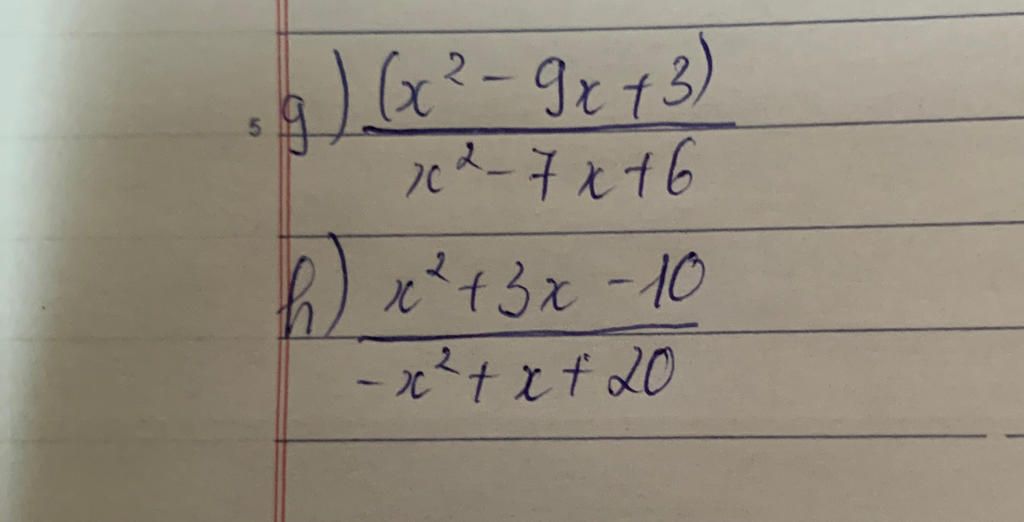 5 g) (x² - 9x + 3)
x² - 7x + 6
h) x² + 3x - 10
-x² + x + 20